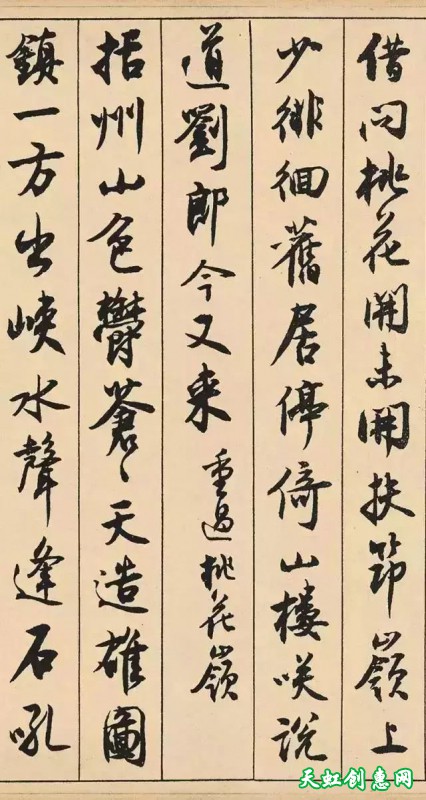 借问桃花開未開扶筇嶺上
少徘徊舊居停倚山樓咲説
道劉郎今又来 重過桃花嶺
括州山色鬱蒼〻天造雄圖
鎮一方出峽水聲逢石吼
天虹创惠网